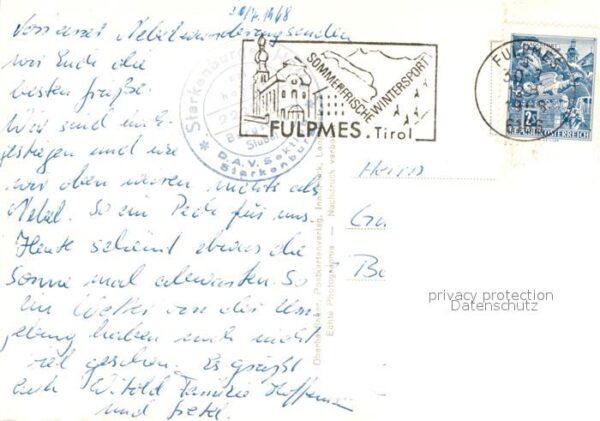 29/7. 1968
Von einer Nebelwanderung senden
wir Euch die
besten Grüße.
Wir sind auf-
gestiegen und wie
wir oben waren nichts als
Nebel. So ein Pech für uns.
Heute scheint etwas die
Sonne mal abwarten. So
ein Wetter von der Um
gebung haben noch nicht
viel gesehen. Es grüßt
Euch Witold Familie
und Gretel.
Starkenburger
Stubai
D.A.V. Sekti
Starkenburg
SOMMERFRISCHE WINTERSPORT
FULPMES. Tirol
FULPMES
1968
2S
REPUBLIK ÖSTERREICH
Herrn
Postkartenverlag, Innsbruck,
Echte Photographie — Nachdruck verboten
privacy protection
Datenschutz